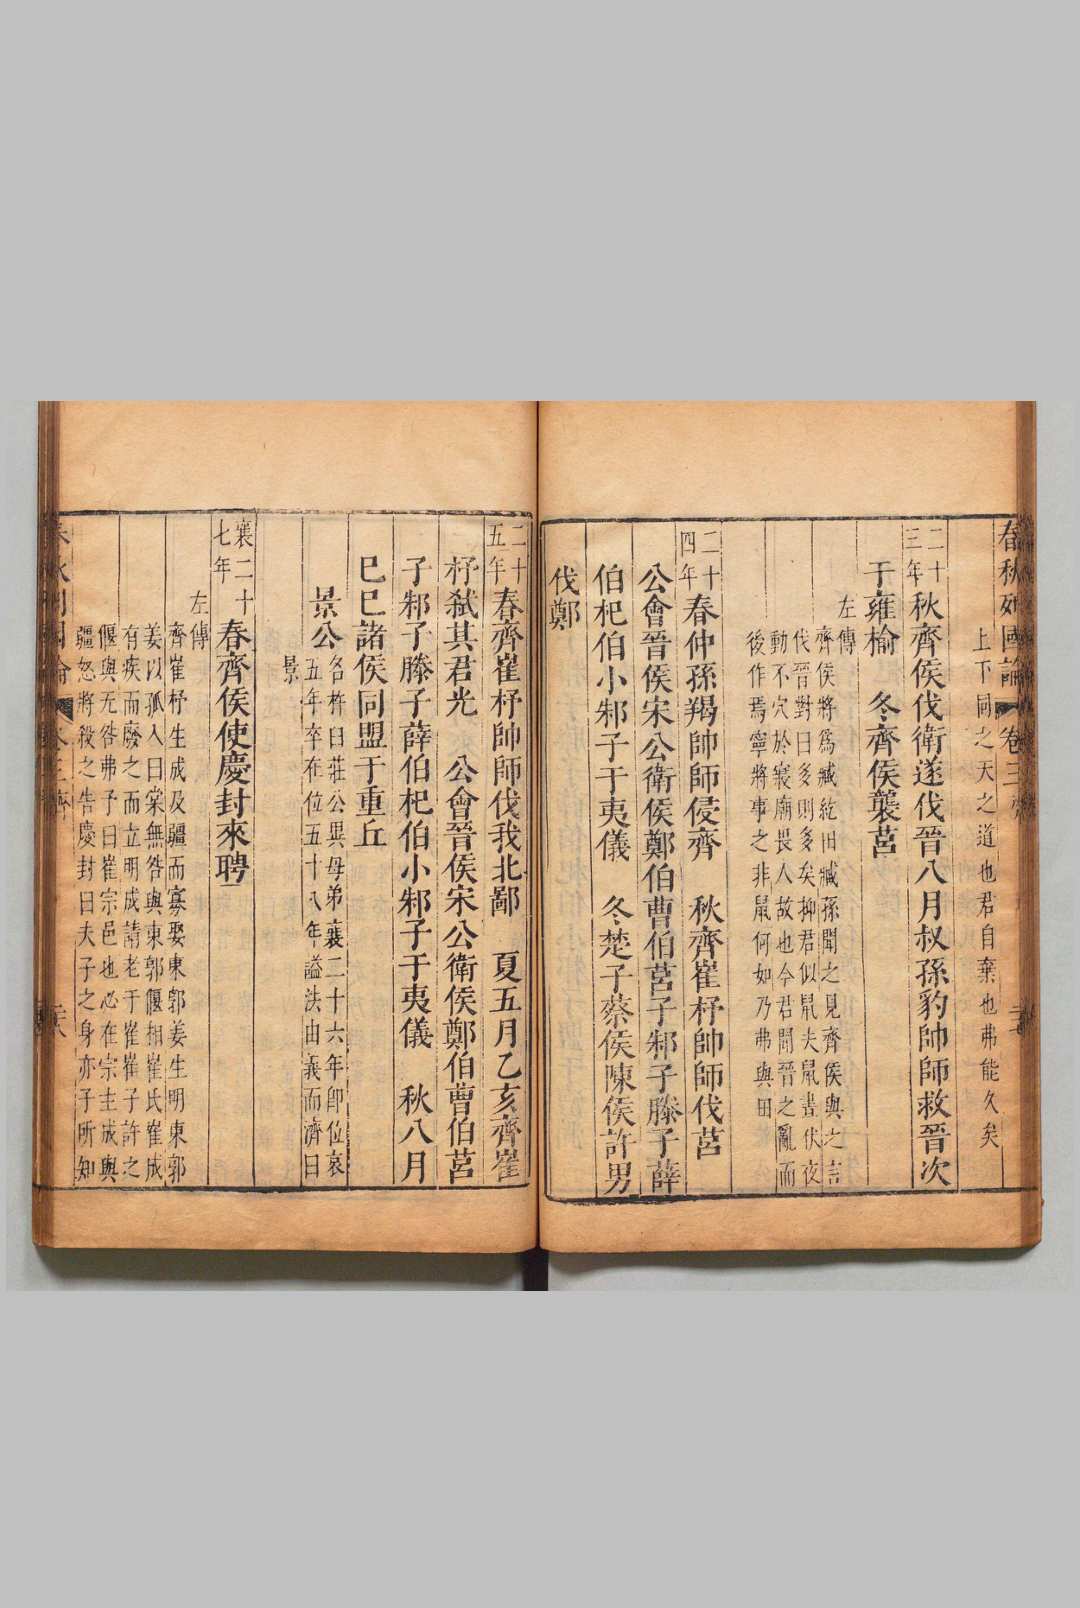 春秋列國論 卷三 齊
上下同之天之道也君自棄也弗能久矣
二十三年 秋齊侯伐衛遂伐晉八月叔孫豹帥師救晉次
于雍榆 冬齊侯襲莒
左傳
齊侯將爲臧紇田臧孫聞之見齊侯與之言
伐晉對曰多則多矣抑君似鼠夫鼠晝伏夜
動不穴於寢廟畏人故也今君聞晉之亂而
後作焉寧將事之非鼠何如乃弗與田
二十四年 春仲孫羯帥師侵齊 秋齊崔杼帥師伐莒
公會晉侯宋公衛侯鄭伯曹伯莒子邾子滕子薛
伯杞伯小邾子于夷儀 冬楚子蔡侯陳侯許男
伐鄭
二十五年 春齊崔杼帥師伐我北鄙 夏五月乙亥齊崔
杼弒其君光 公會晉侯宋公衛侯鄭伯曹伯莒
子邾子滕子薛伯杞伯小邾子于夷儀 秋八月
巳巳諸侯同盟于重丘
景公
名杵臼莊公異母弟襄二十六年卽位哀
五年卒在位五十八年謚法由義而濟曰
景
襄二十七年 春齊侯使慶封來聘
左傳
齊崔杼生成及疆而寡娶東郭姜生明東郭
姜以孤入曰棠無咎與東郭偃相崔氏崔成
有疾而廢之而立明成請老于崔崔子許之
偃與无咎弗予曰崔宗邑也必在宗主成與
疆怒將殺之告慶封曰夫子之身亦子所知